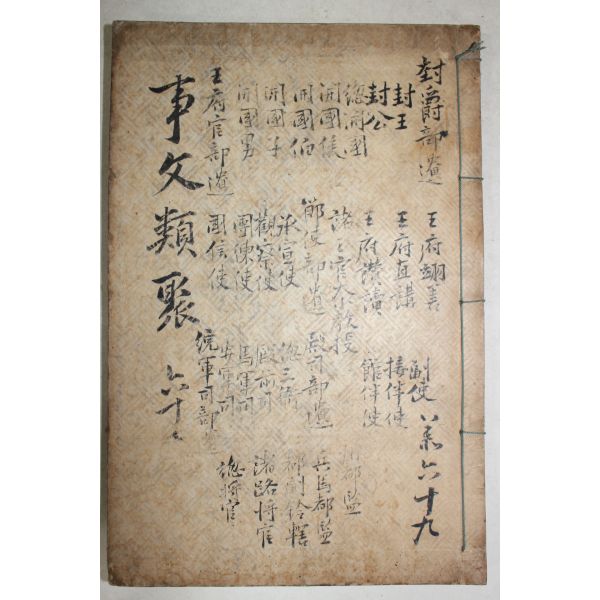 封爵部遺
封王
封公
總開國
開國侯
開國伯
開國子
開國男
王府官部遺
王府翊善
王府直講
王府讚讀
諸王宮教授
節使部遺
承宣使
觀察使
團練使
國信使
副使
接伴使
館伴使
殿司部遺
總三衙
殿前司
馬軍司
步軍司
統軍司部遺
都監
兵馬都監
都副鈐轄
諸路將官
總將官
事文類聚
六十
六十九